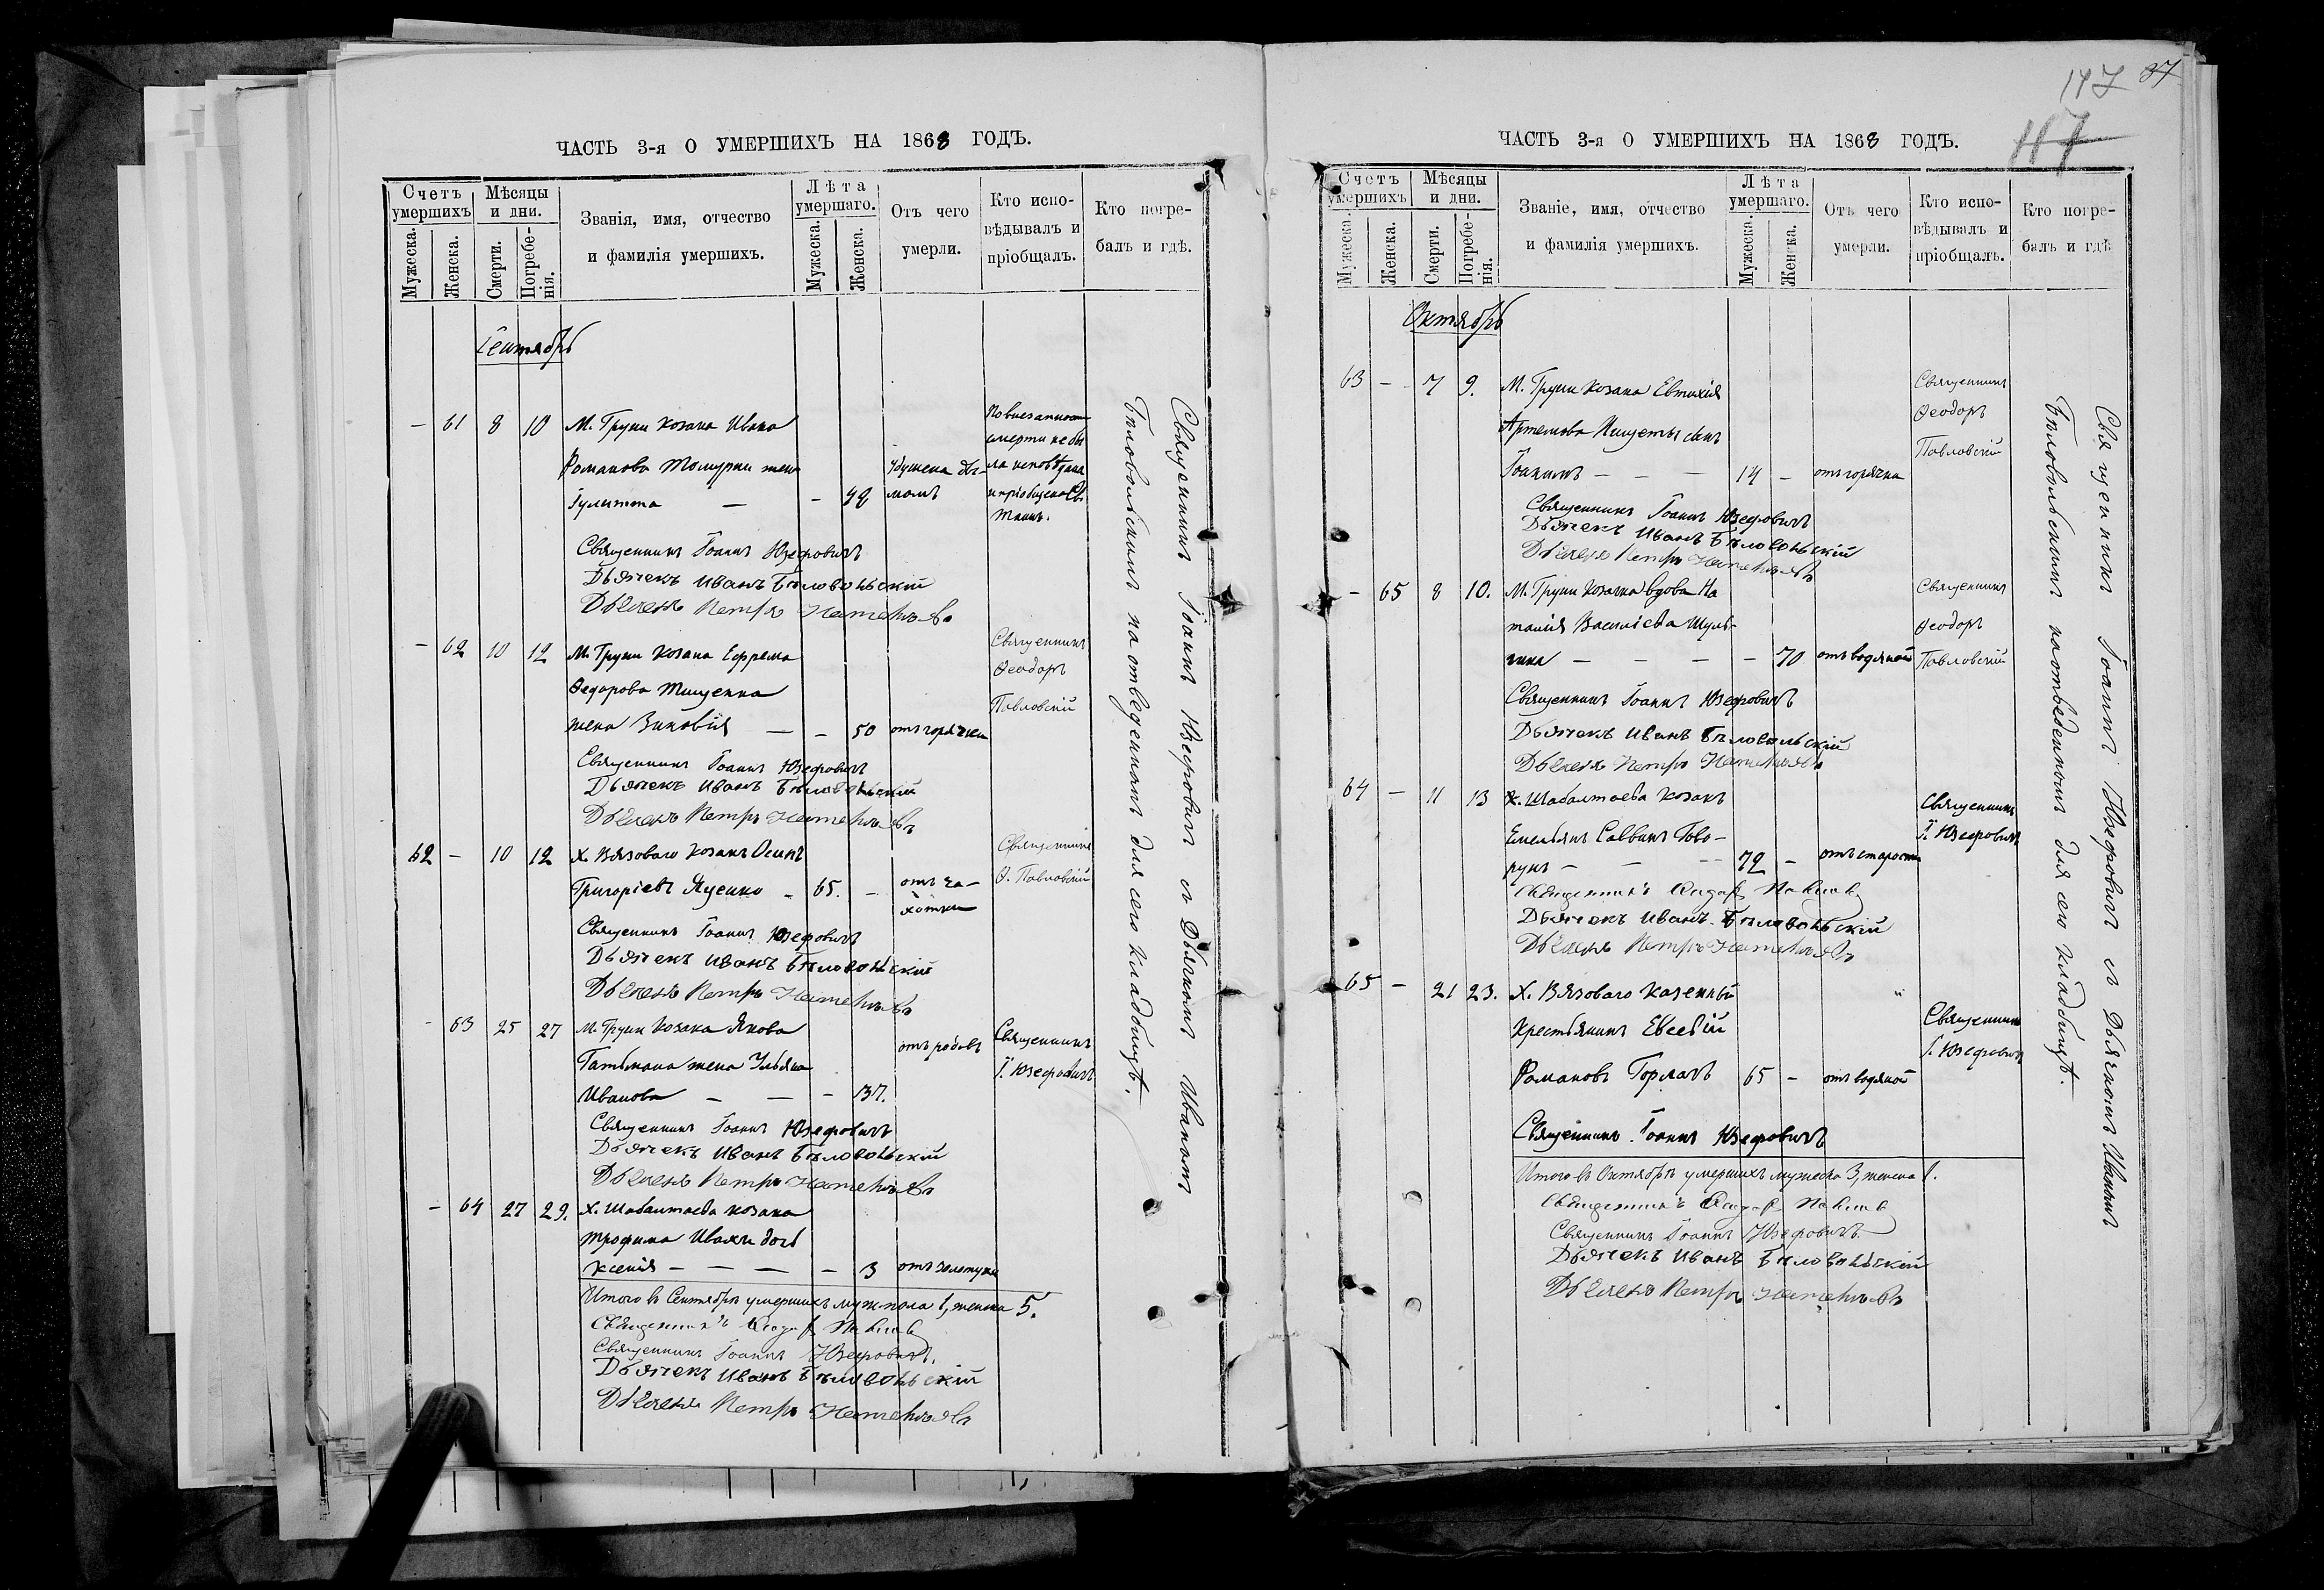 ЧАСТЬ 3-я О УМЕРШИХЪ НА 1868 ГОДЪ.
Счетъ умершихъ
Мѣсяцы и дни.
Званія, имя, отчество
и фамилія умершихъ.
Лѣта умершаго.
Отъ чего
умерли.
Кто испо-
вѣдывалъ и
пріобщалъ.
Кто погре-
балъ и гдѣ.
Мужеска.
Женска.
Смерти.
Погребе-
нія.
Мужеска.
Женска.
Сентябрь
— 61 8 10 М. Груни козака Ивана
Романова жена
Іулитта — — 48
По внезапности
смерти не бы
ла исповѣдана
и пріобщена Св.
Таинъ.
Священникъ Іоаннъ Юзефовичъ
Дьячекъ Иванъ Бѣловольскій
Петръ
— 62 10 12 М. Груни козака Ефрема
Федорова Тищенка
жена Зиновія — — 50 отъ горячки
Священникъ
Ѳеодоръ
Павловскій
Священникъ Іоаннъ Юзефовичъ
Дьячекъ Иванъ Бѣловольскій
Петръ
62 — 10 12 Х. Вязоваго козакъ Осипъ
Григоріевъ Яценко - 65. — отъ ча-
хотки
Священникъ
Ѳ. Павловскій
Священникъ Іоаннъ Юзефовичъ
Дьячекъ Иванъ Бѣловольскій
Петръ
- 63 25 27 М. Груни козака Якова
жена Ульяна
Иванова — — — 37.
отъ родовъ
Священникъ
І. Юзефовичъ
Священникъ Іоаннъ Юзефовичъ
Дьячекъ Иванъ Бѣловольскій
Петръ
— 64 27 29. Х. Шабалтаева козака
Трофима дочь
Ксенія — — — — 3 отъ золотухи
Итого въ Сентябрѣ умершихъ муж. пола 1, женска 5.
Священникъ
Священникъ Іоаннъ Юзефовичъ.
Дьячекъ Иванъ Бѣловольскій
Петръ
Священникъ Іоаннъ Юзефовичъ съ Дьячкомъ Иваномъ
Бѣловольскимъ на отведенномъ для сего кладбищѣ.
147 37
117
ЧАСТЬ 3-я О УМЕРШИХЪ НА 1868 ГОДЪ.
Счетъ умершихъ
Мѣсяцы и дни.
Званіе, имя, отчество
и фамилія умершихъ.
Лѣта умершаго.
Отъ чего
умерли.
Кто испо-
вѣдывалъ и
пріобщалъ.
Кто погре-
балъ и гдѣ
Мужеска.
Женска.
Смерти.
Погребе-
нія.
Мужеска.
Женска.
Октябрь
63 — 7 9. М. Груни козака Евтихія
Артемова сынъ
Іоакимъ — — — 14 — отъ горячки
Священникъ
Ѳеодоръ
Павловскій
Священникъ Іоаннъ Юзефовичъ
Дьячекъ Иванъ Бѣловольскій
Петръ
— 65 8 10. М. Груни козачка вдова На
талія Василіева Шуль-
гина — — — — 70 отъ водяной
Священникъ
Ѳеодоръ
Павловскій
Священникъ Іоаннъ Юзефовичъ
Дьячекъ Иванъ Бѣловольскій
Петръ
64 — 11 13 Х. Шабалтаева козакъ
Емельянъ Саввинъ Гово-
рунъ — — — 72 — отъ старости
Священникъ
І. Юзефовичъ
Священникъ
Дьячекъ Иванъ Бѣловольскій
Петръ
65 — 21 23. Х. Вязоваго казенный
крестьянинъ Евсевій
Романовъ Горлачъ 65 — отъ водяной
Священникъ
І. Юзефовичъ
Священникъ Іоаннъ Юзефовичъ
Итого въ Октябрѣ умершихъ мужеска 3, женска 1.
Священникъ
Священникъ Іоаннъ Юзефовичъ
Дьячекъ Иванъ Бѣловольскій
Петръ
Священникъ Іоаннъ Юзефовичъ съ Дьячкомъ Иваномъ
Бѣловольскимъ на отведенномъ для сего кладбищѣ.